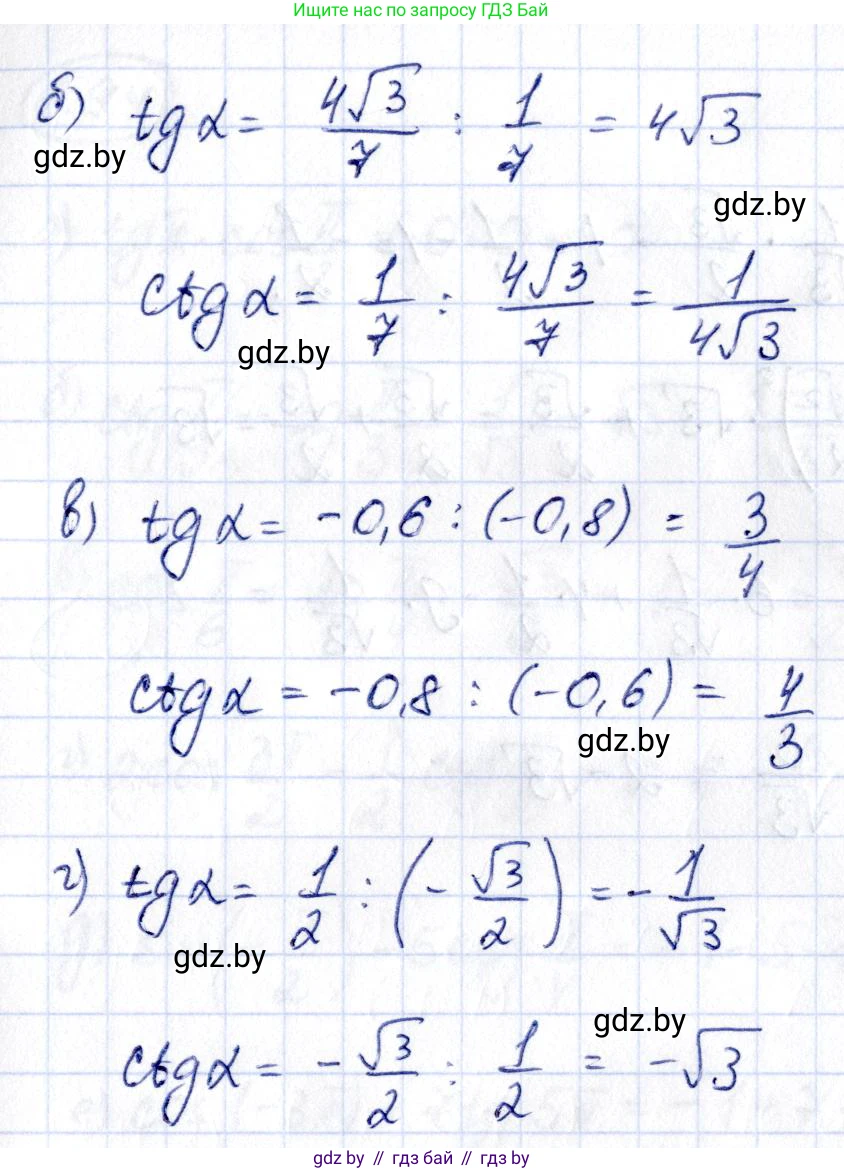 Ищите нас по запросу ГДЗ Бай
б) tg α = 4√3/7 : 1/7 = 4√3
gdz.by
gdz.by
ctg α = 1/7 : 4√3/7 = 1/4√3
gdz.by
в) tg α = -0,6 : (-0,8) = 3/4
ctg α = -0,8 : (-0,6) = 4/3
gdz.by
г) tg α = 1/2 : (-√3/2) = -1/√3
gdz.by
gdz.by
ctg α = -√3/2 : 1/2 = -√3
gdz.by // гдз бай // gdz by